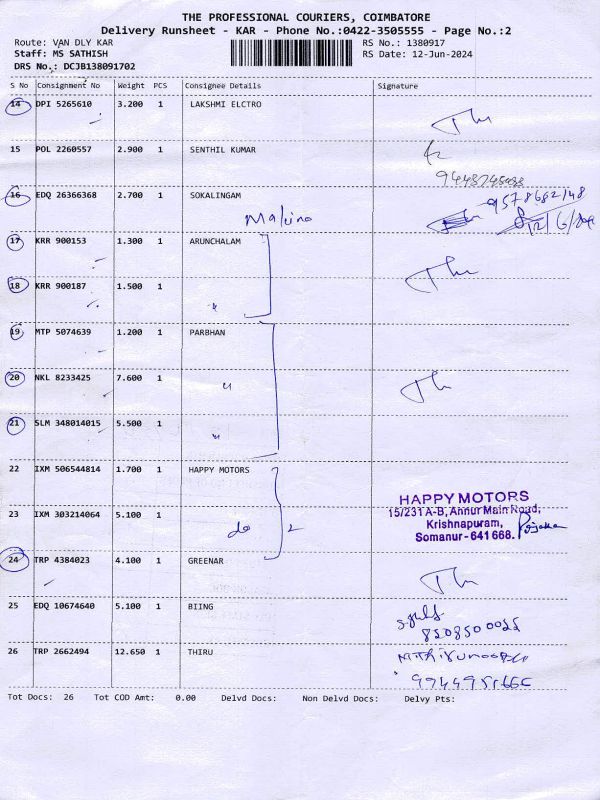 THE PROFESSIONAL COURIERS, COIMBATORE
Delivery Runsheet - KAR - Phone No.:0422-3505555 - Page No.:2
Route: VAN DLY KAR
RS No.: 1380917
Staff: MS SATHISH
RS Date: 12-Jun-2024
DRS No.: DCJB138091702
S No Consignment No Weight PCS Consignee Details Signature
14 DPI 5265610 3.200 1 LAKSHMI ELCTRO
15 POL 2260557 2.900 1 SENTHIL KUMAR
16 EDQ 26366368 2.700 1 SOKALINGAM
9578682148
17 KRR 900153 1.300 1 ARUNCHALAM
18 KRR 900187 1.500 1
19 MTP 5074639 1.200 1 PARBHAN
20 NKL 8233425 7.600 1
21 SLM 348014015 5.500 1
22 IXM 506544814 1.700 1 HAPPY MOTORS
HAPPY MOTORS
15/231 A-B, Annur Main Road,
23 IXM 303214064 5.100 1
Krishnapuram,
do 2
Somanur-641 668.
24 TRP 4384023 4.100 1 GREENAR
25 EDQ 10674640 5.100 1 BIING
8208500022
26 TRP 2662494 12.650 1 THIRU
Tot Docs: 26 Tot COD Amt: 0.00 Delvd Docs: Non Delvd Docs: Delvy Pts: